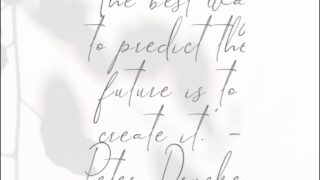 The best wa
to predict the
future is to
create it." -
Peter Drucke